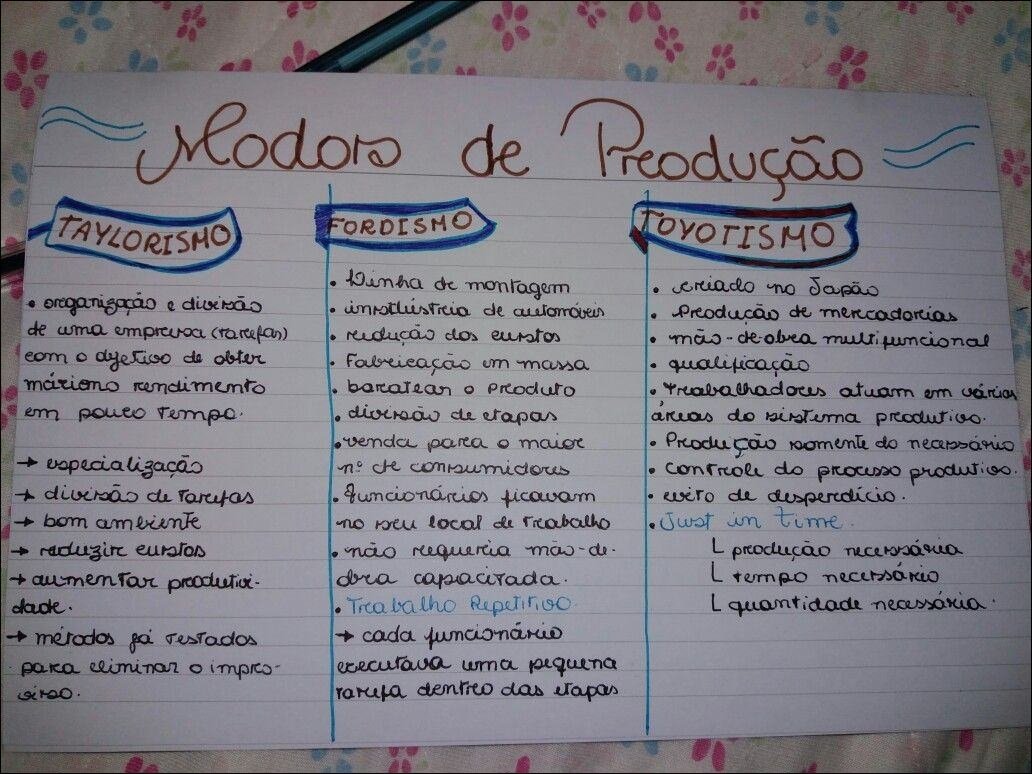 Modos de Produção
TAYLORISMO
• organização e divisão
de uma empresa (tarefas)
com o objetivo de obter
máximo rendimento
em pouco tempo.
→ especialização
→ divisão de tarefas
→ bom ambiente
→ reduzir custos
→ aumentar produtivi-
dade.
→ métodos já testados
para eliminar o impro-
viso.
FORDISMO
• Linha de montagem
• indústria de automóveis
• redução dos custos
• Fabricação em massa
• baratear o produto
• divisão de etapas
• venda para o maior
nº de consumidores
• funcionários ficavam
no seu local de trabalho
• não requeria mão-de-
obra capacitada.
• Trabalho Repetitivo.
→ cada funcionário
executava uma pequena
tarefa dentro das etapas
TOYOTISMO
• criado no Japão
• Produção de mercadorias
• mão-de-obra multifuncional
• qualificação
• Trabalhadores atuam em várias
áreas do sistema produtivo.
• Produção somente do necessário
• controle do processo produtivo.
• evito de desperdício.
• Just in time.
L produção necessária
L tempo necessário
L quantidade necessária.